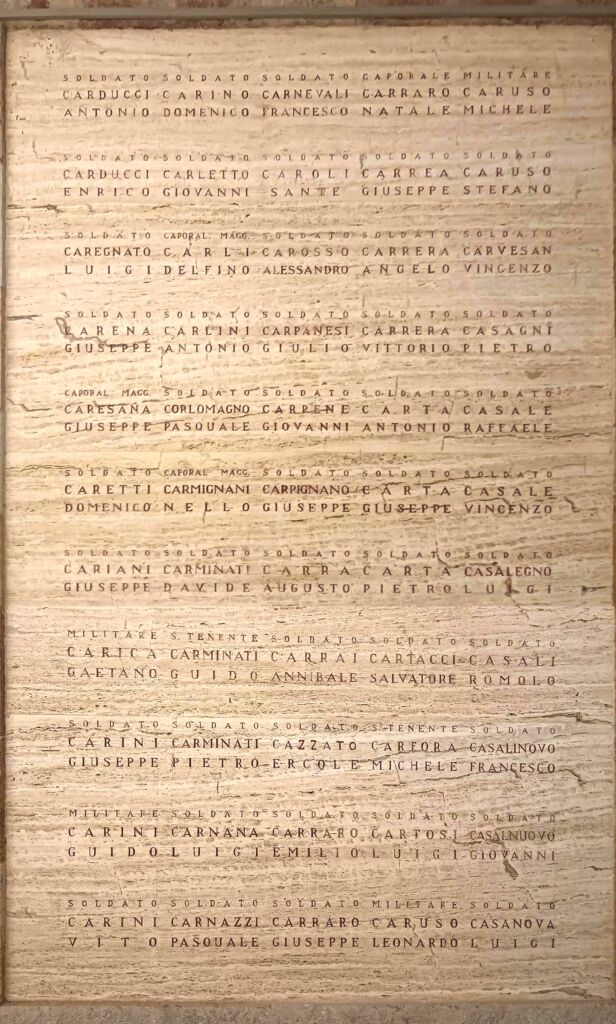 SOLDATO SOLDATO SOLDATO CAPORALE MILITARE
CARDUCCI CARINO CARNEVALI CARRARO CARUSO
ANTONIO DOMENICO FRANCESCO NATALE MICHELE
SOLDATO SOLDATO SOLDATO SOLDATO SOLDATO
CARDUCCI CARLETTO CAROLI CARREA CARUSO
ENRICO GIOVANNI SANTE GIUSEPPE STEFANO
SOLDATO CAPORAL MAGG. SOLDATO SOLDATO SOLDATO
CAREGNATO CARLI CAROSSO CARRERA CARVESAN
LUIGI DELFINO ALESSANDRO ANGELO VINCENZO
SOLDATO SOLDATO SOLDATO SOLDATO SOLDATO
CARENA CARLINI CARPANESI CARRERA CASAGNI
GIUSEPPE ANTONIO GIULIO VITTORIO PIETRO
CAPORAL MAGG. SOLDATO SOLDATO SOLDATO SOLDATO
CARESANA CORLOMAGNO CARPENE CARTA CASALE
GIUSEPPE PASQUALE GIOVANNI ANTONIO RAFFAELE
SOLDATO CAPORAL MAGG. SOLDATO SOLDATO SOLDATO
CARETTI CARMIGNANI CARPIGNANO CARTA CASALE
DOMENICO NELLO GIUSEPPE GIUSEPPE VINCENZO
SOLDATO SOLDATO SOLDATO SOLDATO SOLDATO
CARIANI CARMINATI CARRA CARTA CASALEGNO
GIUSEPPE DAVIDE AUGUSTO PIETRO LUIGI
MILITARE S.TENENTE SOLDATO SOLDATO SOLDATO
CARICA CARMINATI CARRAI CARTACCI CASALI
GAETANO GUIDO ANNIBALE SALVATORE ROMOLO
SOLDATO SOLDATO SOLDATO S.TENENTE SOLDATO
CARINI CARMINATI CAZZATO CARFORA CASALINOVO
GIUSEPPE PIETRO ERCOLE MICHELE FRANCESCO
MILITARE SOLDATO SOLDATO SOLDATO SOLDATO
CARINI CARNANA CARRARO CARTOSI CASALNUOVO
GUIDO LUIGI EMILIO LUIGI GIOVANNI
SOLDATO SOLDATO SOLDATO MILITARE SOLDATO
CARINI CARNAZZI CARRARO CARUSO CASANOVA
VITO PASQUALE GIUSEPPE LEONARDO LUIGI